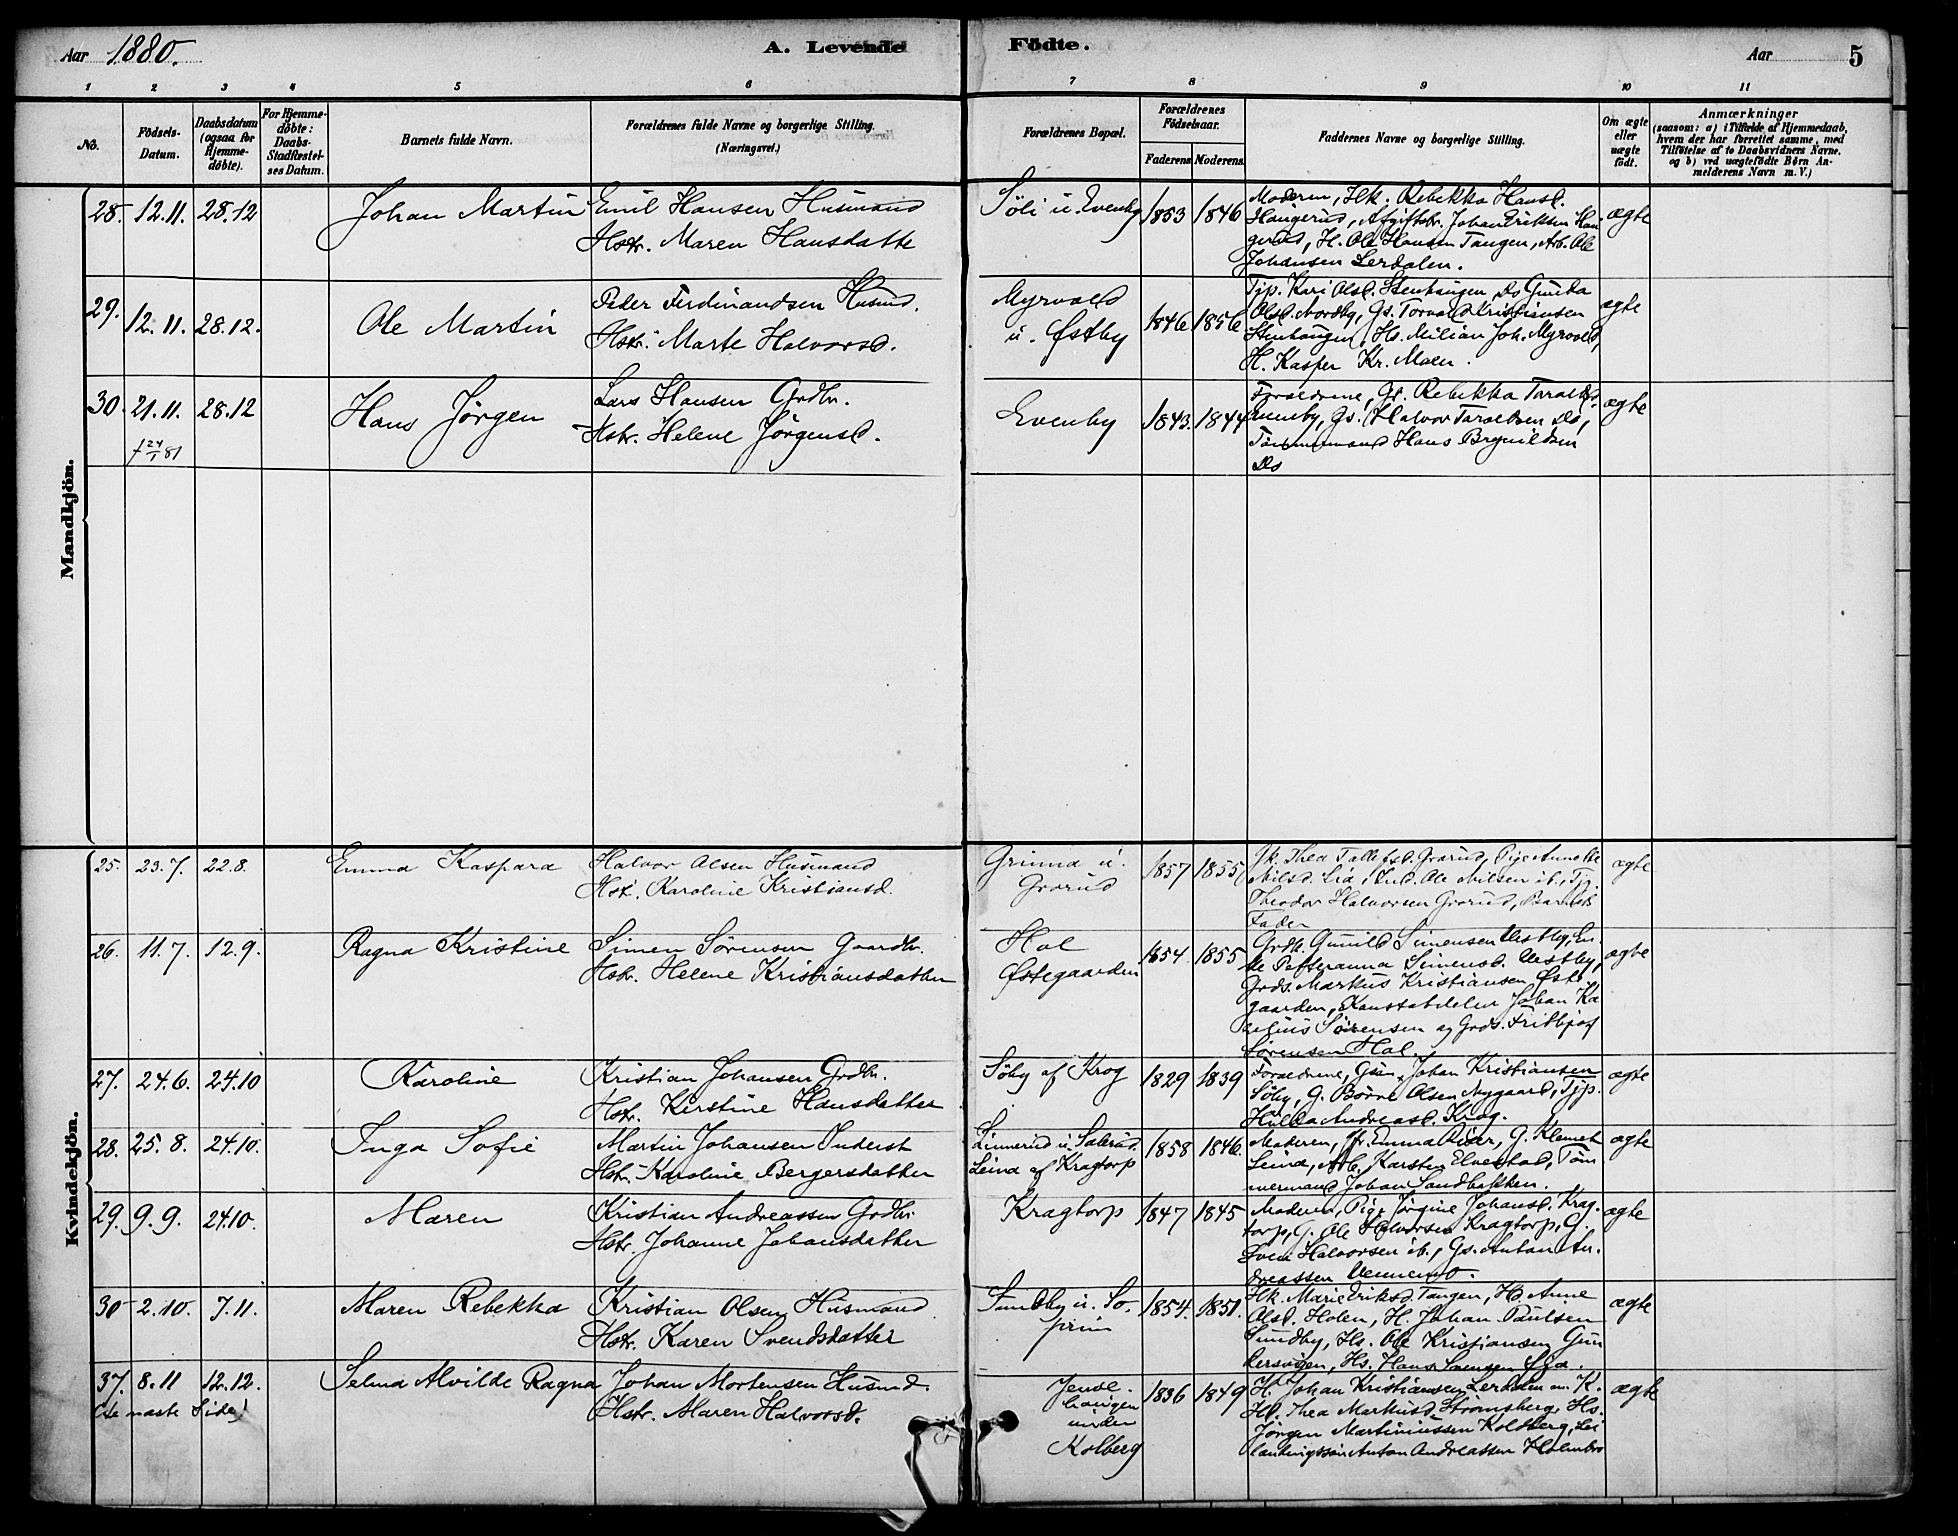 Aar 1880.
A. Levende Fødte.
Aar
5
1 2 3 4 5 6 7 8 9 10 11
No.
Födsels-Datum.
Daabsdatum (ogsaa for Hjemme-döbte).
For Hjemme-döbte: Daabs-Stadfæstel-ses Datum.
Barnets fulde Navn.
Forældrenes fulde Navne og borgerlige Stilling.
(Næringsvei.)
Forældrenes Bopæl.
Forældrenes Födselsaar.
Faderens. Moderens.
Faddernes Navne og borgerlige Stilling.
Om ægte eller uægte födt.
Anmærkninger
(saasom: a) i Tilfælde af Hjemmedaab,
hvem der har forrettet samme, med
Tilföielse af to Daabsvidners Navne,
og b) ved uægtefödte Börn An-
melderens Navn m. V.)
Mandkjön.
28. 12.11. 28.12 Johan Martin
Emil Hansen Husmand
Hstr. Maren Hansdatte
Söli u. Evenby 1853 1846
Moderen, Hk. Rebekka Hansd.
Haugerud, Afgiftsbr. Johan Eriksen Hau
gerud, H. Ole Hansen Tangen, Arb. Ole
Johansen Lerdalen.
ægte
29. 12.11. 28.12. Ole Martin
Peder Ferdinandsen Husmd.
Hstr. Marte Halvorsd.
Myrvold
u. Østby
1846 1856
Tjp. Kari Olsd. Stenhaugen, Do Gunda
Olsd. Nordby, Gs. Torvald Kristiansen
Stenhaugen, Hs. Milian Joh. Myrvold,
H. Kasper Kr. Moen.
ægte
30. 21.11. 28.12 Hans Jörgen
† 24/1 81
Lars Hansen Grdbr.
Hstr. Helene Jörgensd.
Evenby 1843. 1844
Forældrene, Gk. Rebekka Taralds.
Evenby, Gs. Halvor Taraldsen Do,
Tömmermand Hans Brynildsen
Do
ægte
Kvindekjön.
25. 23.7. 22.8. Emma Kaspara
Halvor Olsen Husmand
Hst. Karoline Kristiansd.
Grinna u.
Grorud
1857 1855
Gk. Thea Tollefsd. Grorud, Pige Annette
Nilsd. Lia, Ind. Ole Nilsen ib., Tjg.
Theodor Halvorsen Grorud, Barnets
Fader
ægte
26. 11.7. 12.9. Ragna Kristine
Simen Sörensen Gaardbr.
Hstr. Helene Kristiansdatter
Hol
Østegaarden
1854. 1855
Grdk. Gunild Simensen Vestby, En-
ke Petteranna Simensd. Vestby,
Grds. Markus Kristiansen Øste-
gaarden, Konstabelelev Johan Ka
Sörensen og Grds. Fritbjof
Sörensen Hol.
ægte
27. 24.6. 24.10 Karoline
Kristian Johansen Grdbr.
Hstr. Kerstine Hansdatter
Söby af Krog 1829 1839
Forældrene, Gsön Johan Kristiansen
Söby, G. Börre Olsen Nygaard, Tjp.
Hulda Andreasd. Krog.
ægte
28. 25.8. 24.10. Inga Sofie
Martin Johansen Inderst
Hstr. Karoline Bergersdatter
Linnerud u. Solerud.
Leind af Kragtorp
1858 1846.
Moderen, Fr. Emma Riser, G. Klemet
Leind, Arb. Karsten Elvestad, Töm
mermand Johan Sandbakken.
ægte
29. 9.9. 24.10. Maren
Kristian Andreassen Grdbr.
Hstr. Johanne Johansdatter
Kragtorp 1847 1845
Moderen, Pige Jörgine Johansd. Krag-
torp, G. Ole Halvorsen Kragtorp, G.
Even Halvorsen ib., Gs. Anton An-
dreassen Vennemo.
ægte
30 2.10. 7.11. Maren Rebekka
Kristian Olsen Husmand
Hstr. Karen Svendsdatter
Sundby u. So-
prim
1854. 1851.
Hk. Marie Eriksd. Tangen, Hd. Anne
Olsd. Holen, H. Johan Paulsen
Sundby, Hs. Ole Kristiansen Gun
dersvögen, Hs. Hans Svensen Øya.
ægte
37. 8.11 12.12. Selma Alvilde Ragna
(Se næste Side)
Johan Mortensen Husmd.
Hstr. Maren Halvorsd.
Jenve-
haugen
under
Kolberg
1836 1849
H. Johan Kristiansen Lerdalen m. K.
Hd. Thea Markusd. Strömsberg, Hs.
Jörgen Martiniussen Koldberg, Lei
lændingssön Anton Andreassen Holmbro
ægte